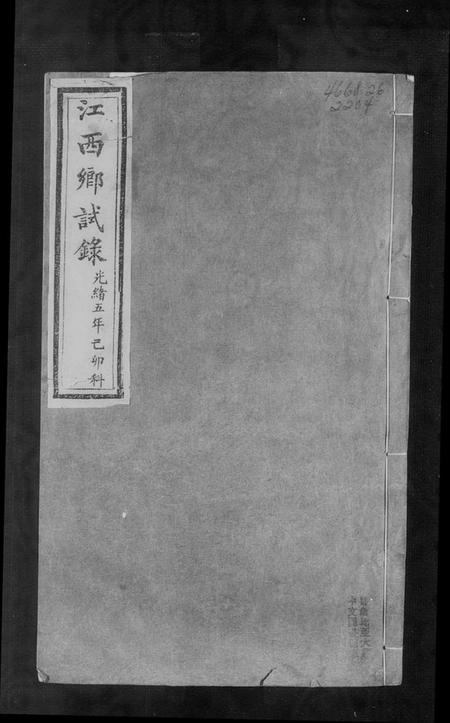 江西鄉試錄
光緒五年己卯科
4668.26
2204